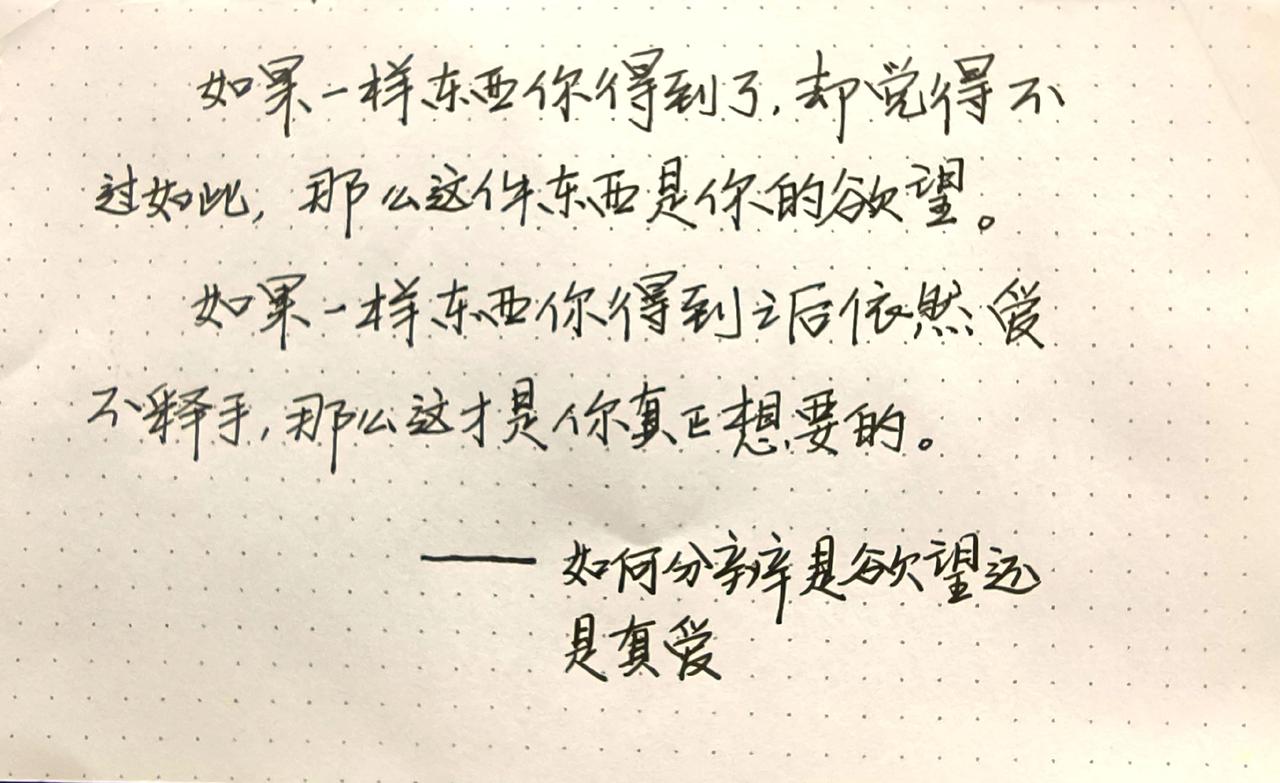 如果一样东西你得到了,却觉得不
过如此,那么这件东西是你的欲望。
如果一样东西你得到之后依然爱
不释手,那么这才是你真正想要的。
—— 如何分辨是欲望还
是真爱